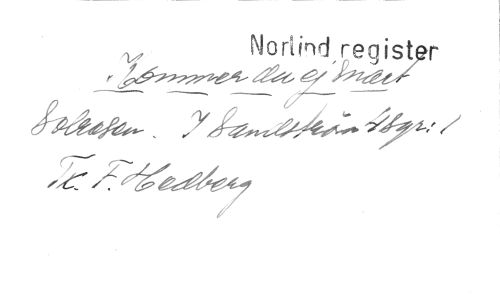 Norlind register
Kommer du ej snart
Solrosen. I Samlström 48 gr: 1
Tr. F. Hedberg